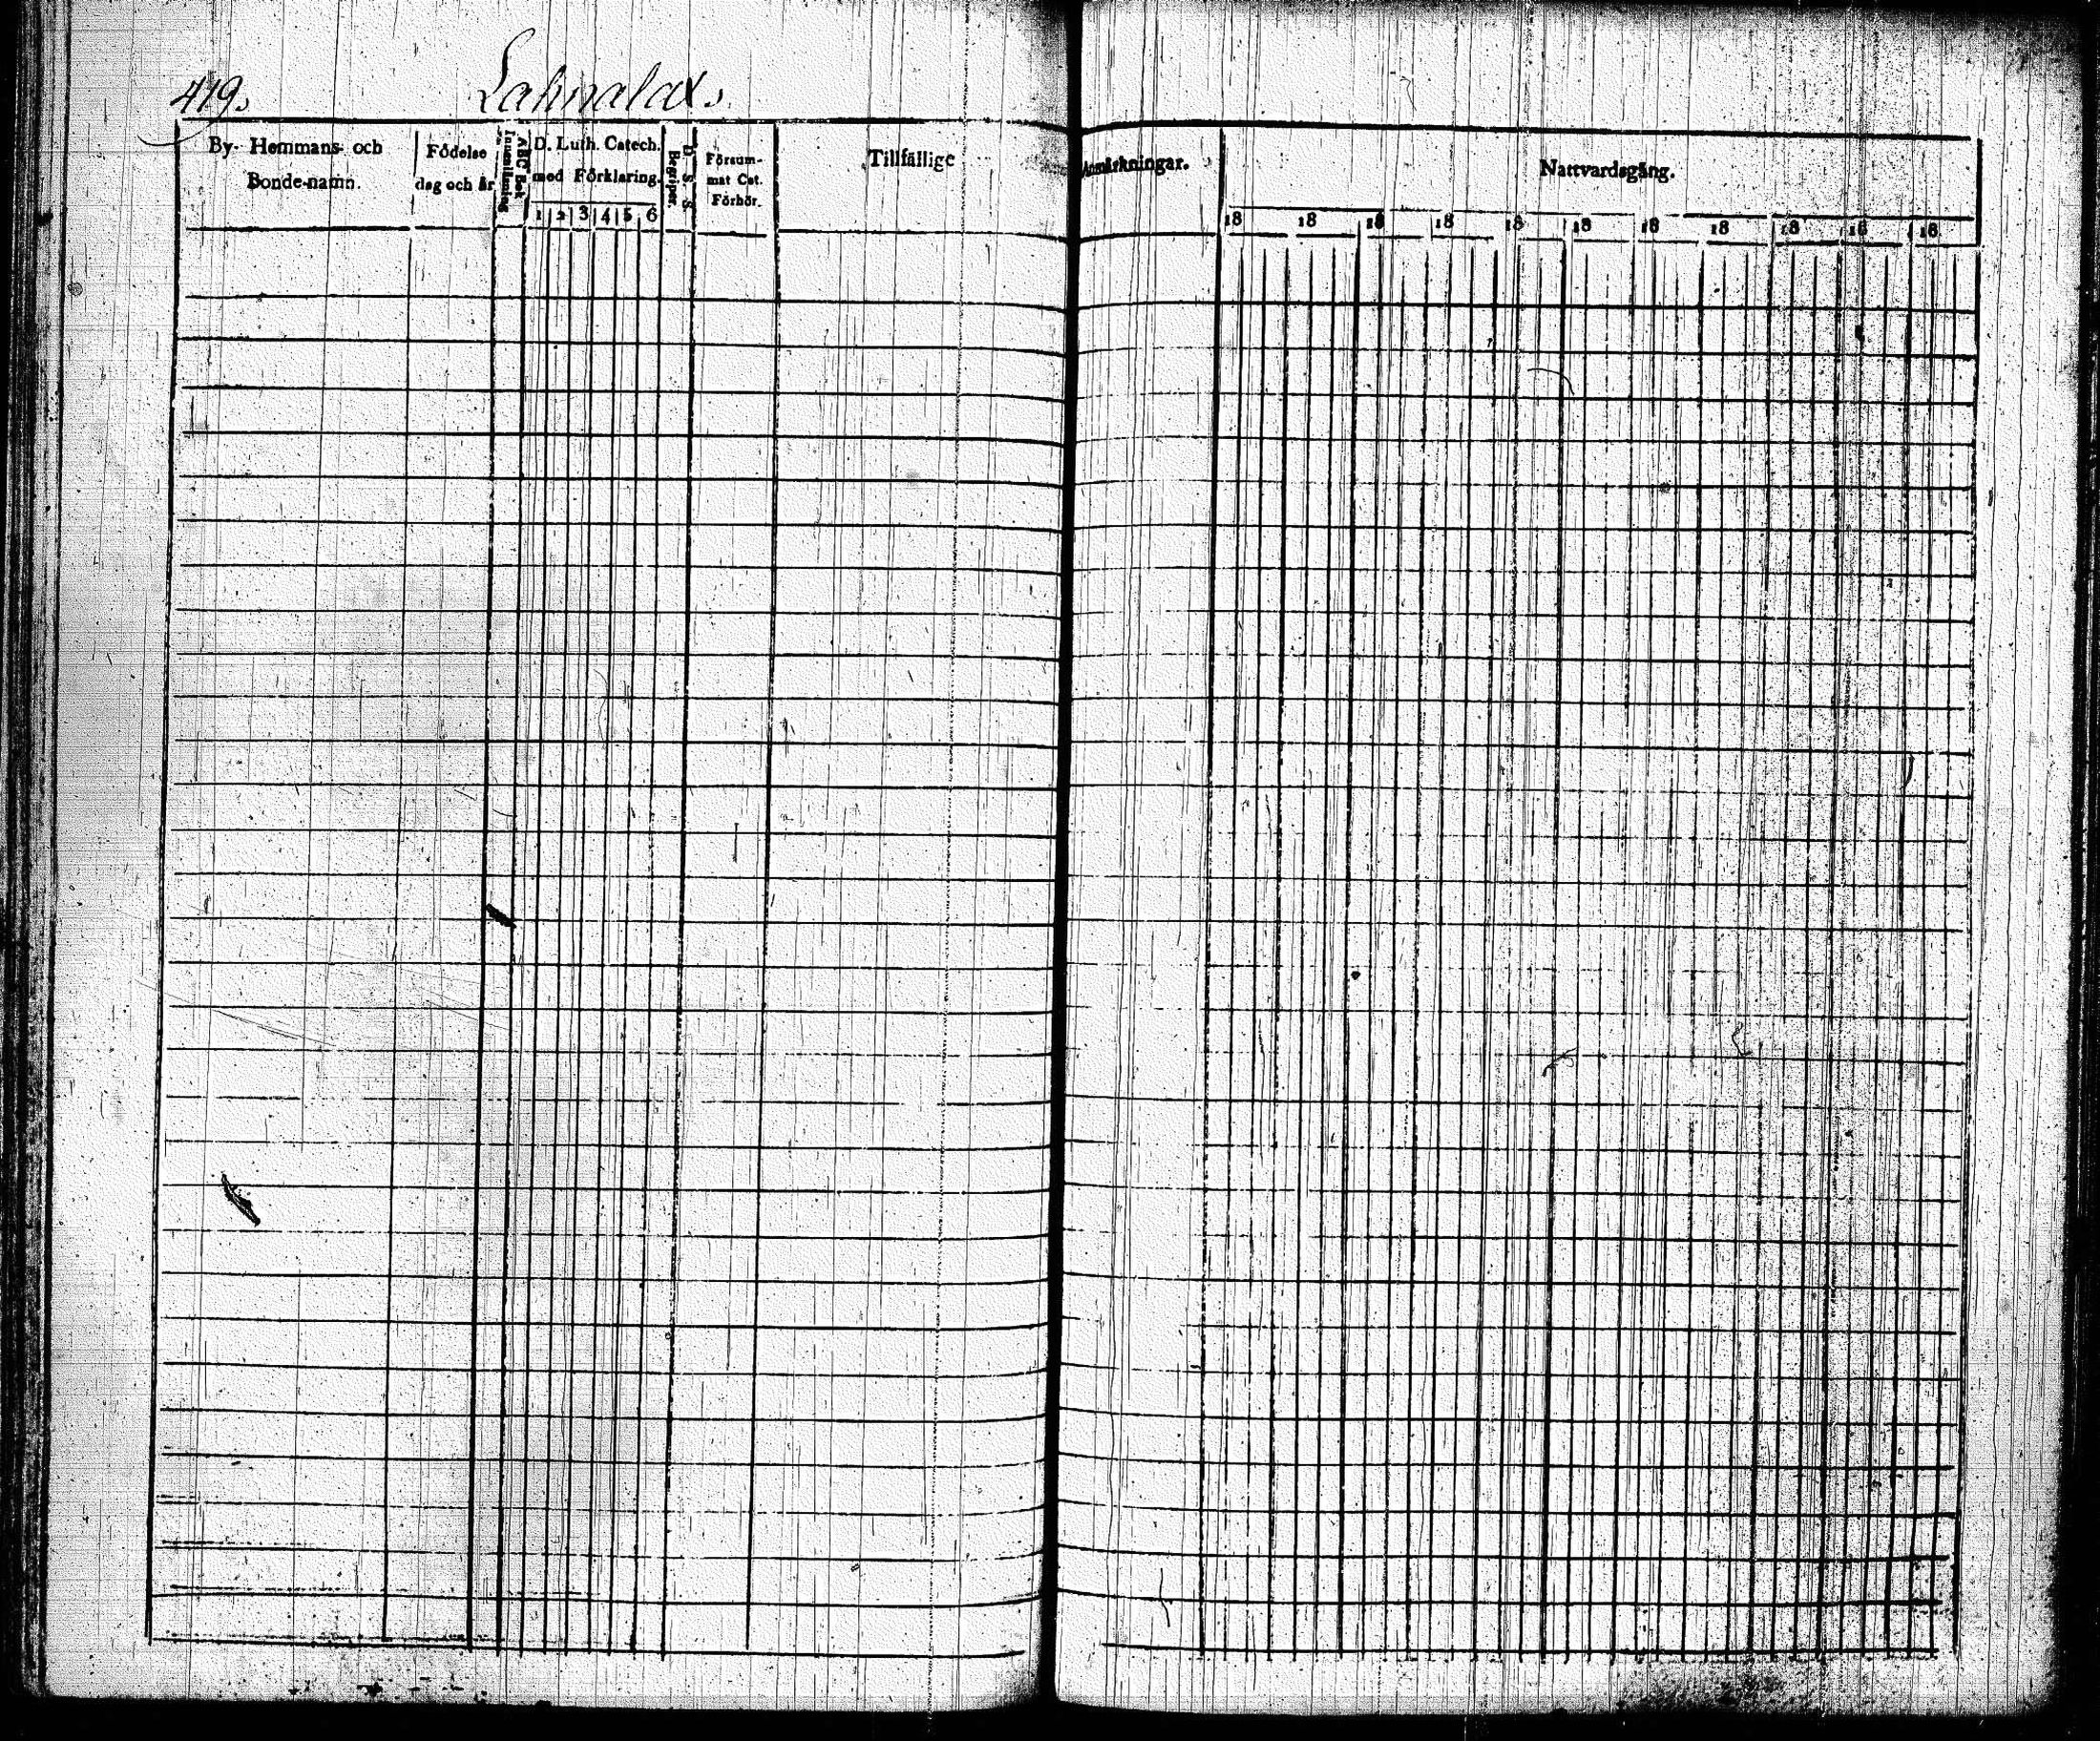 419. Lahnalax.
By- Hemmans- och
Bonde-namn.
Födelse
dag och år
Innanläsning
ABC Bok
D. Luth. Catech.
med Förklaring.
1 2 3 4 5 6
D. S. S.
Begriper
Försum-
mat Cat.
Förhör.
Tillfällige
Anmärkningar.
Nattvardsgång.
18 18 18 18 18 18 18 18 18 18 18